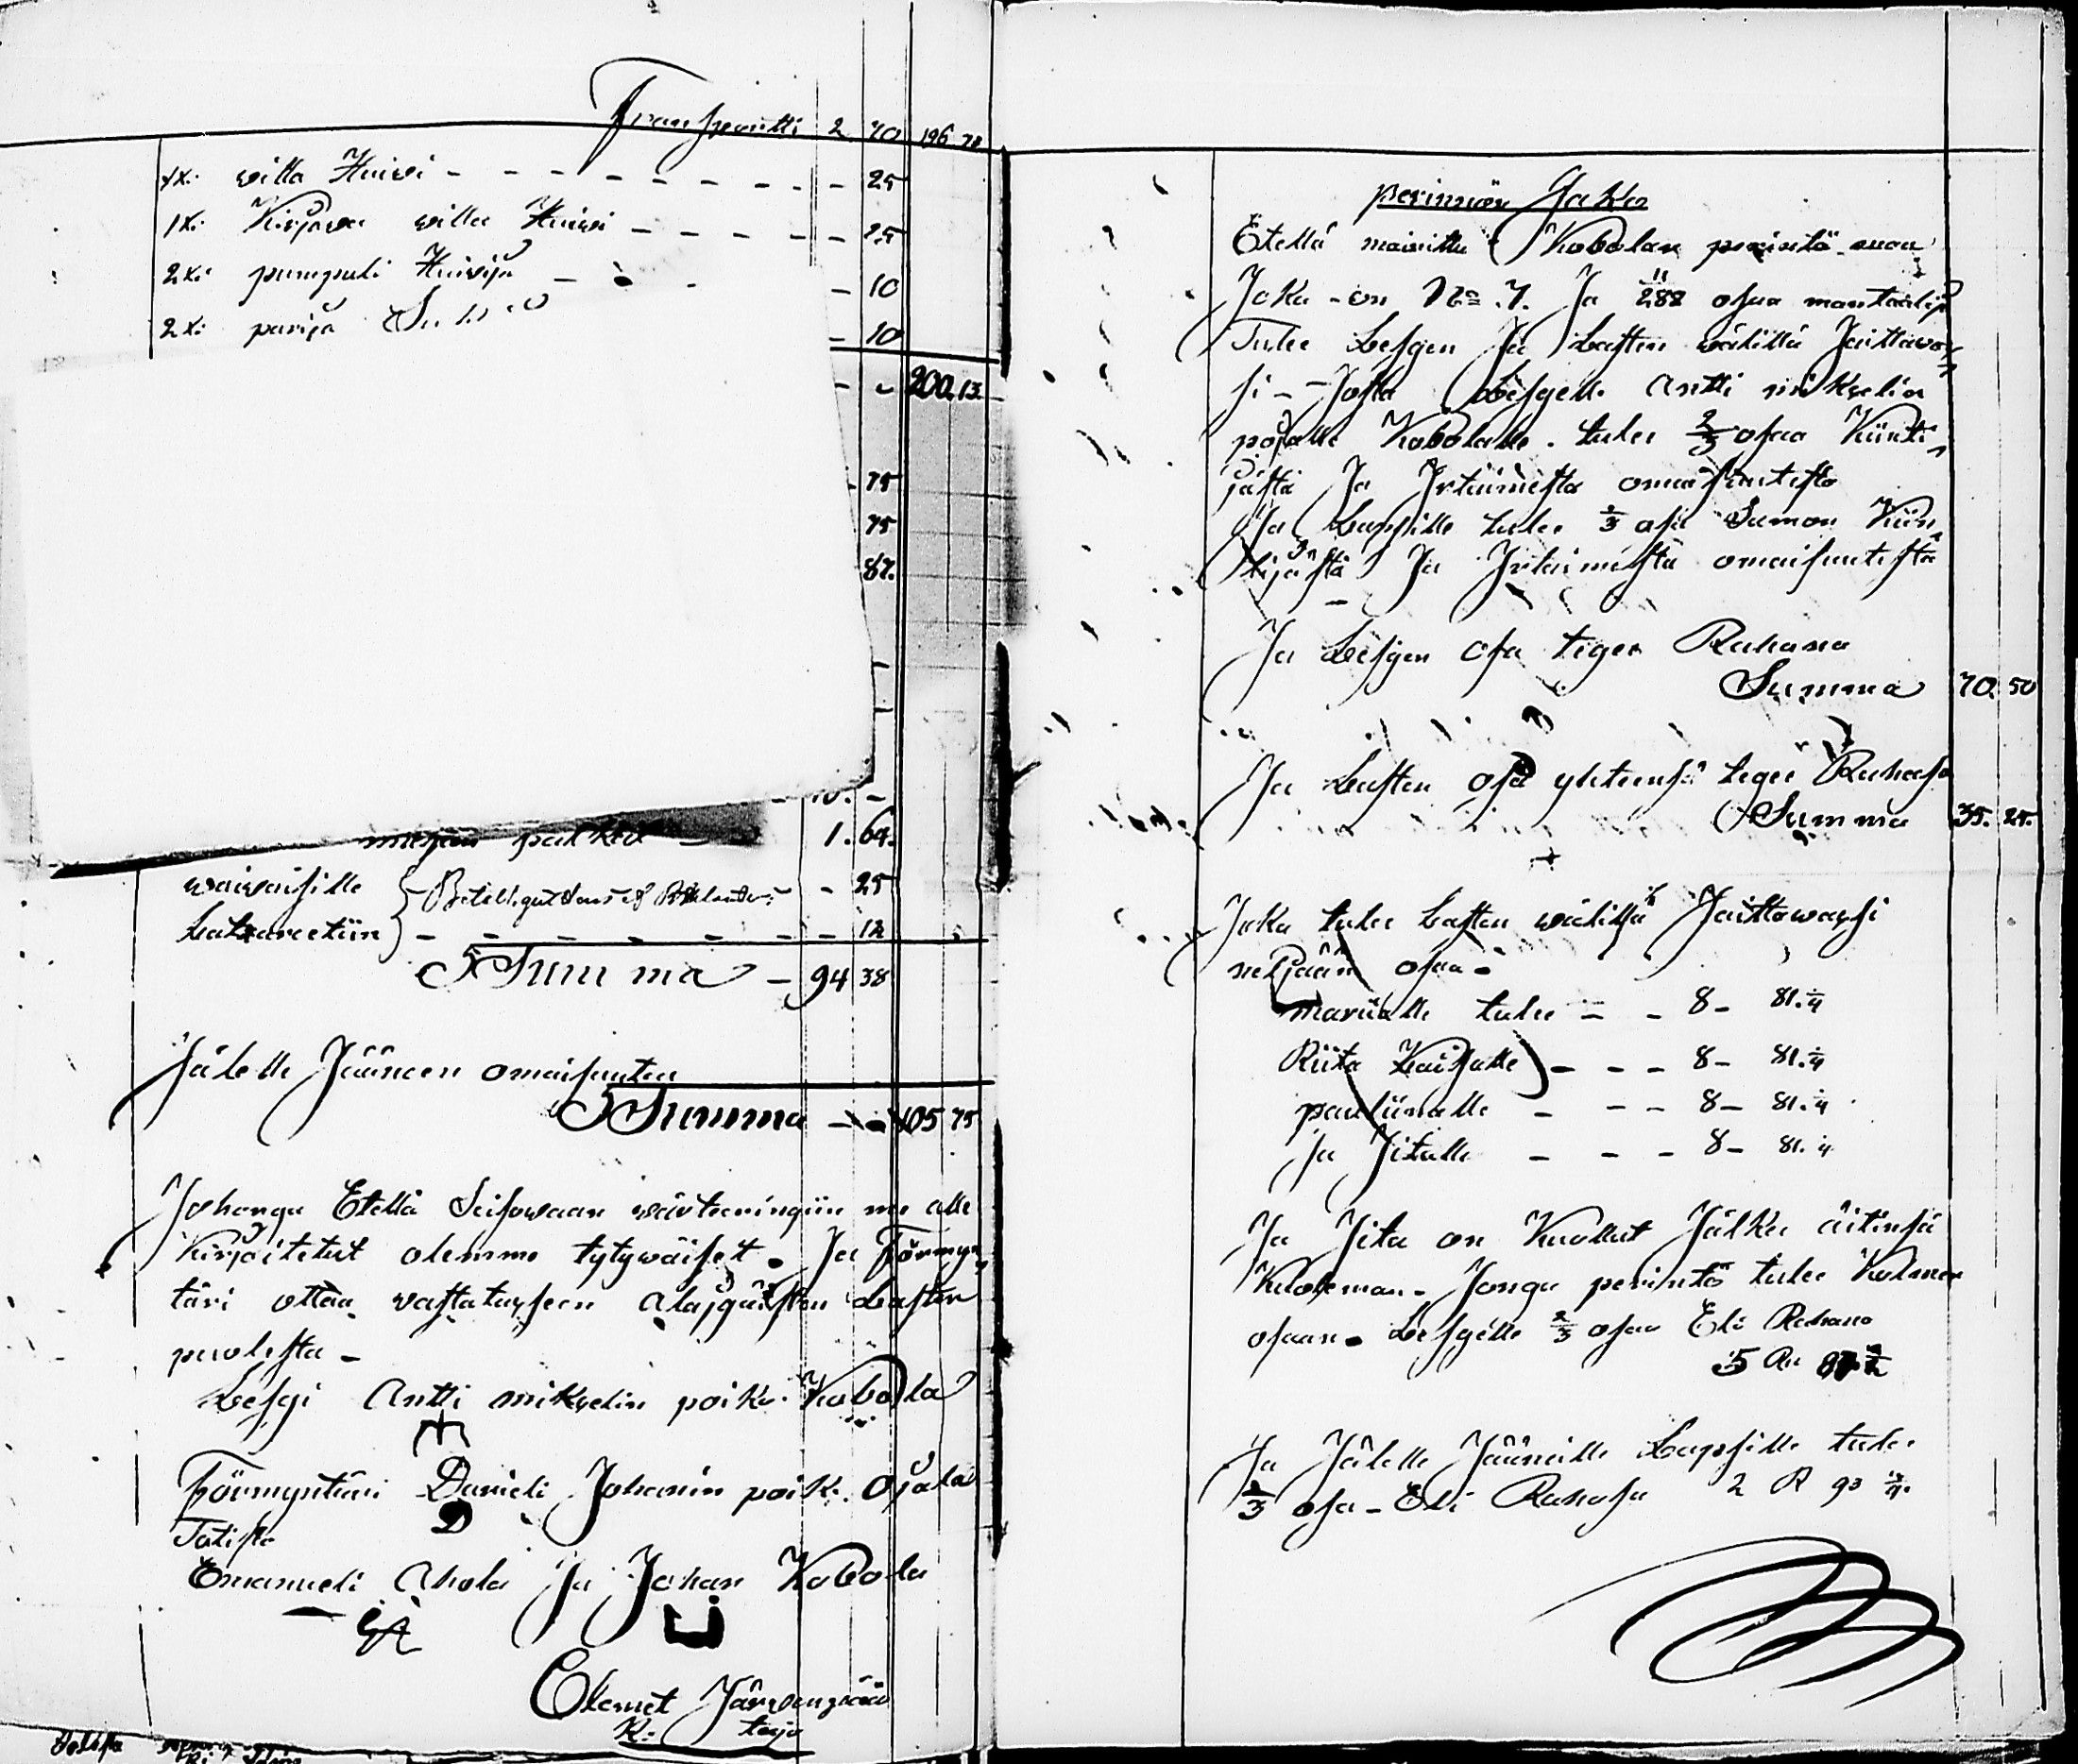 Transpoortti 2 70 196 78
1 K: willa Huiwi - - - - - - - - - 25
1 K: Kirjawa willa Huiwi - - - - - - 25
2 K: pumpuli Huiwija - - - 10
2 K: parija - 10
- - 200,13.
75
75
87.
10. -
miesten palkka - 1. 64.
waiwaisille - - 25
Latsareetiin - - - - - - - 12
Summa - 94 38
Jälelle Jääneen omaisuuten
Summa - - 105 75
Johonga Etellä Seisowaan wärteeringiin me alle
Kirjoitetut olemme tytywäiset. Ja Förmyn
täri ottaa wastatuxseen alajgäisten Lasten
puolesta -
Lesgi Antti mikkelin poika Kobola
Förmyntäri Danieli Johanin poik. Ojala
D
Totista
Emanueli Ahola Ja Johan Kobola
Clemet Järwenpää
K: taja
perinnön Jako
Etellä mainittu Kobolan perintö maa
Joka - on No 7. Ja 11/288 osaa mantaalija
Tulee Lesgen Ja Lasten wälillä Jaittawa
si - Josta Lesgelle Antti mikkelin
pojalle Kobolalle. tulee 2/3 osaa Kiinti
jästä Ja Irtaimesta omaisuutesta
Ja Lapsille tulee 1/3 osa Saman Kiin
tijästä Ja Irtaimesta omaisuutesta
Ja Lesgen osa tigee Rahana
Summa 70. 50
Ja Lasten osa yhteensä tegee Rahasa
Summa 35. 25.
Joka tulee Lasten wälillä Jaittawaxsi
neljään osaa -
mariialle tulee - - 8 - 81.1/4
Riita Kaisalle - - - 8 - 81.1/4
pauliinalle - - - 8 - 81.1/4
Ja Iitalle - - - 8 - 81.1/4
Ja Iita on Kuollut Jälken äitinsä
Kuoleman - Jonga perintö tulee Kolmen
osaan - Lesgelle 2/3 osaa Eli Rahana
5 Ru 87 1/2
Ja Jälelle Jääneille Lapsille tulee
1/3 osa - Eli Rahasa 2 R 93 3/4.